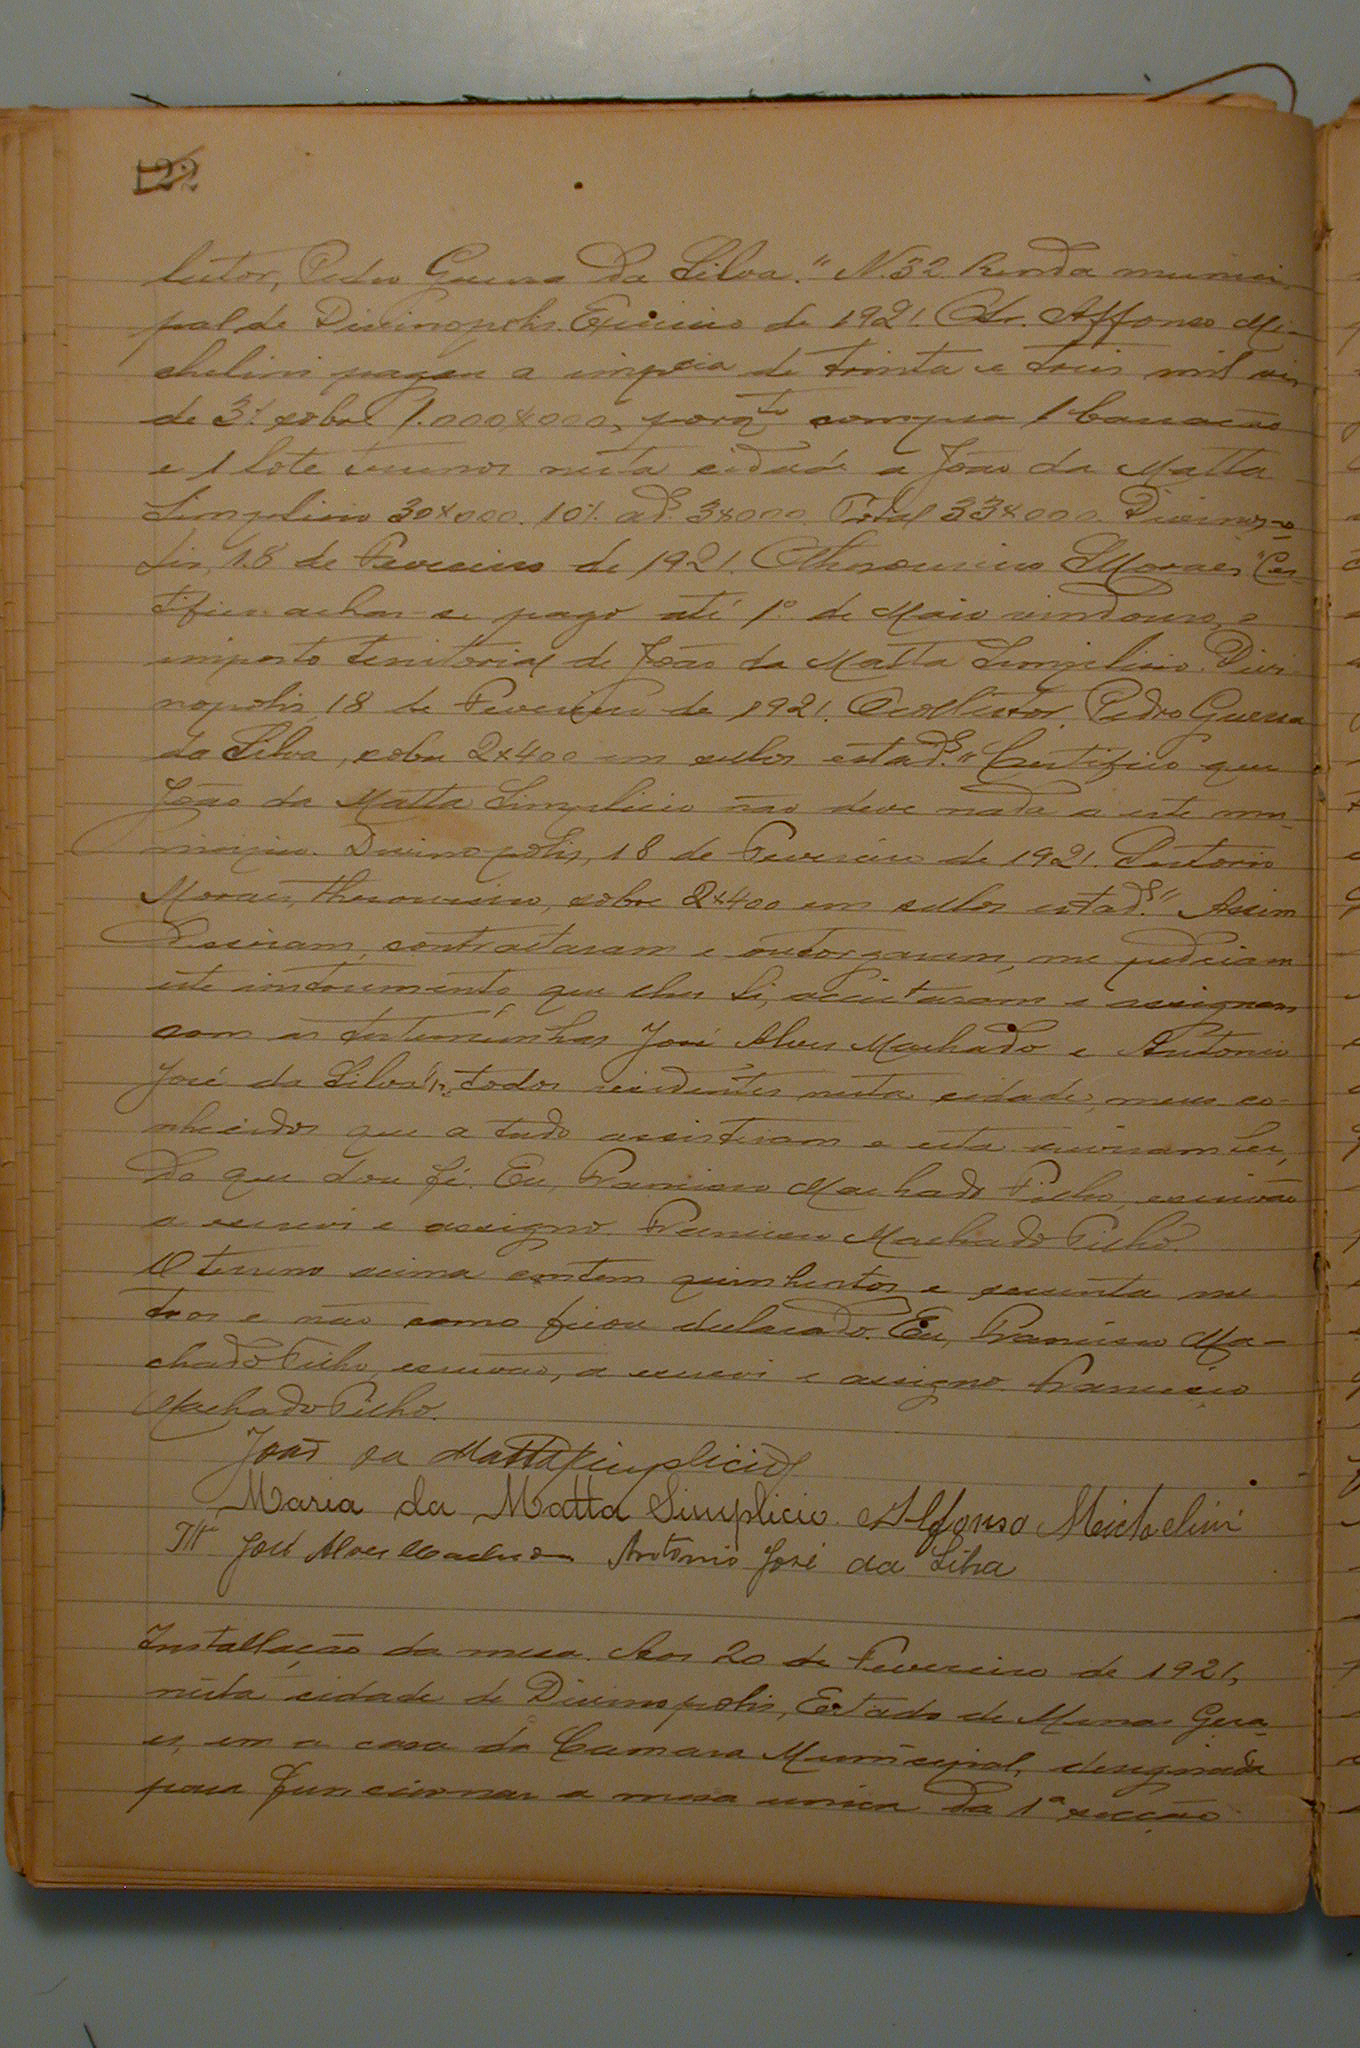 122
lector, Pedro Guerra da Silva." N. 32 Renda munici
pal de Divinopolis. Exercicio de 1921. O Sr. Affonso Mi-
chelini pagou a impcia de trinta e tres mil reis
de 3% sobre 1.000$000, porqto comprou 1 barracão
e 1 lote terrenos nesta cidade a João da Matta
Simplicio 30$000. 10% ads. 3$000. Total 33$000. Divinopo
lis, 18 de Fevereiro de 1921. Moraes "Cer
tifico achar-se pago até 1º de Maio vindouro, o
imposto territorial de João da Matta Simplicio. Divi
nopolis, 18 de Fevereiro de 1921. O collector, Pedro Guerra
da Silva, sobre 2$400 em sellos estads." Certifico que
João da Matta Simplicio não deve nada a este mu-
nicipio. Divinopolis, 18 de Fevereiro de 1921.
Moraes, sobre 2$400 em sellos estads." Assim
disseram, contractaram e outorgaram, me pediram
este instrumento que lhes li, acceitaram e assignam
com as testemunhas José Alves Machado e Antonio
José da Silva, todos residentes nesta cidade, meus co-
nhecidos que a tudo assistiram e esta ouviram ler,
do que dou fé. Eu, Francisco Machado Filho, escrivão
a escrevi e assigno. Francisco Machado Filho.
O terreno acima contem quinhentos e secenta me-
tros e não como ficou declarado. Eu, Francisco Ma-
chado Filho, escrivão, a escrevi e assigno. Francisco
Machado Filho.
João da Matta Simplicio
Maria da Matta Simplicio Alfonso Michelini
TT José Alves Machado Antonio José da Silva
Installação da mesa. Aos 20 de Fevereiro de 1921,
nesta cidade de Divinopolis, Estado de Minas Gera
es, em a casa da Camara Municipal, designada
para funccionar a mesa unica da 1ª secção